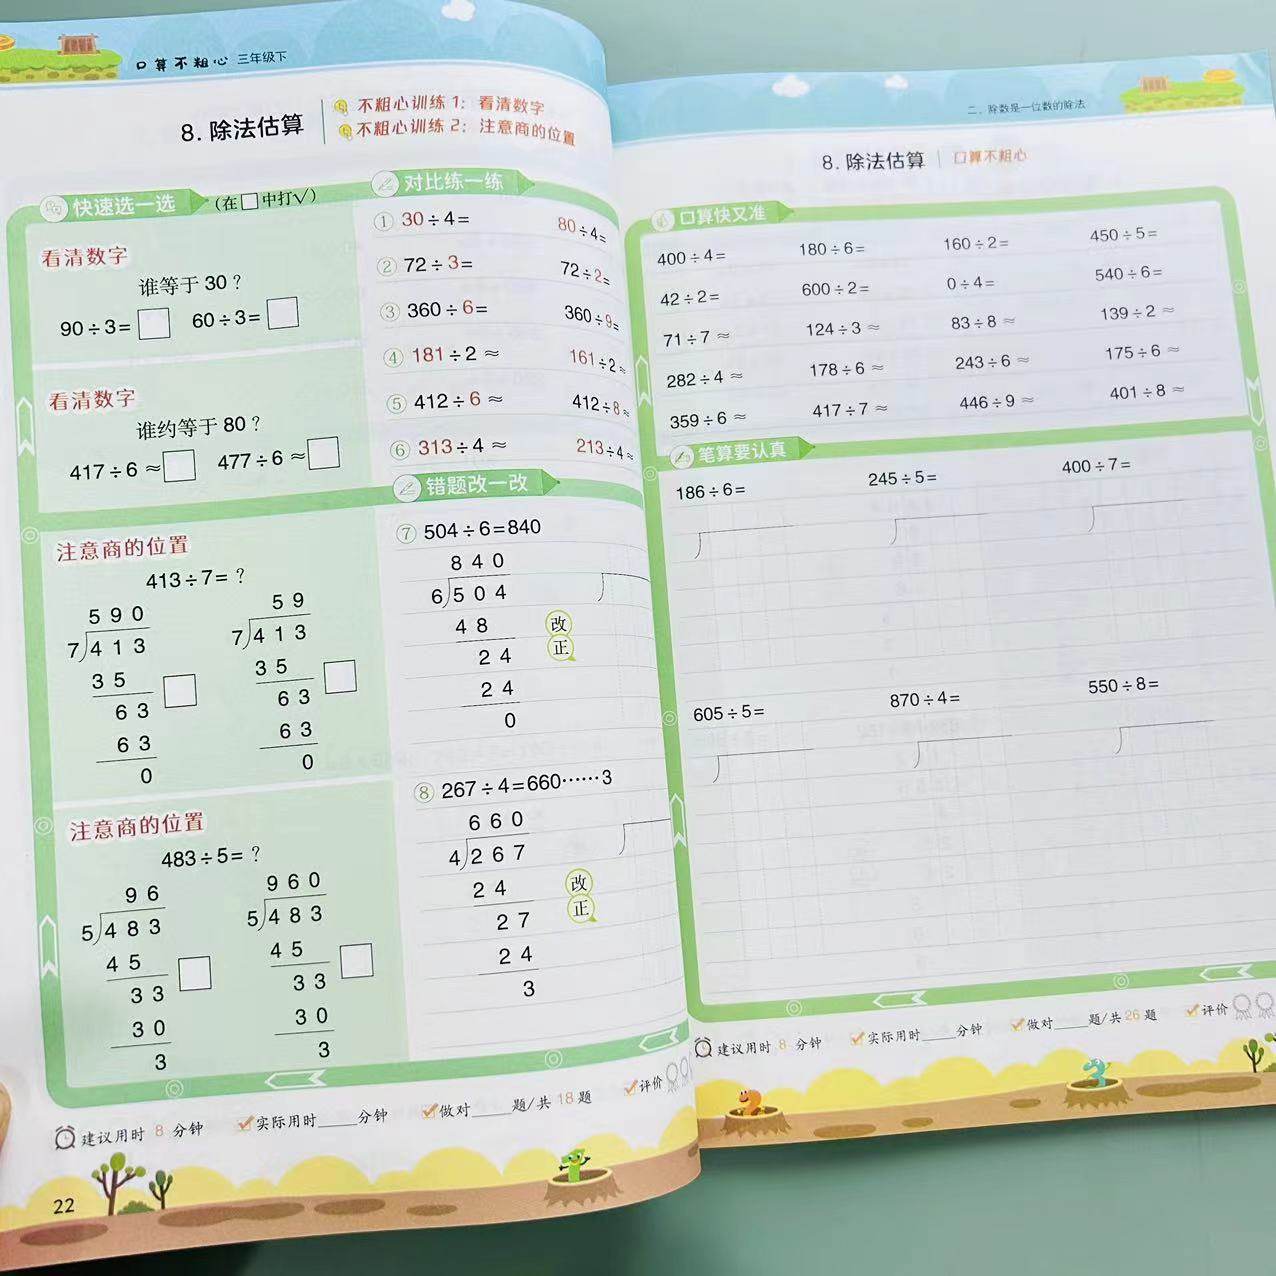 口算不粗心 三年级下
8. 除法估算
不粗心训练 1：看清数字
不粗心训练 2：注意商的位置
快速选一选 （在□中打√）
看清数字
谁等于 30？
90÷3=□ 60÷3=□
看清数字
谁约等于 80？
417÷6≈□ 477÷6≈□
注意商的位置
413÷7=？
590 59
7)413 7)413
35 35
63 63
63 63
0 0
注意商的位置
483÷5=？
96 960
5)483 5)483
45 45
33 33
30 30
3 3
对比练一练
① 30÷4= 80÷4=
② 72÷3= 72÷2=
③ 360÷6= 360÷9=
④ 181÷2≈ 161÷2≈
⑤ 412÷6≈ 412÷8≈
⑥ 313÷4≈ 213÷4≈
错题改一改
⑦ 504÷6=840
840
6)504
48
24
24
0
改正
⑧ 267÷4=660……3
660
4)267
24
27
24
3
改正
建议用时 8 分钟 实际用时____分钟 做对____题/共 18 题 评价
22
二、除数是一位数的除法
8. 除法估算 口算不粗心
口算快又准
400÷4= 180÷6= 160÷2= 450÷5=
42÷2= 600÷2= 0÷4= 540÷6=
71÷7≈ 124÷3≈ 83÷8≈ 139÷2≈
282÷4≈ 178÷6≈ 243÷6≈ 175÷6≈
359÷6≈ 417÷7≈ 446÷9≈ 401÷8≈
笔算要认真
186÷6= 245÷5= 400÷7=
605÷5= 870÷4= 550÷8=
建议用时 8 分钟 实际用时____分钟 做对____题/共 26 题 评价